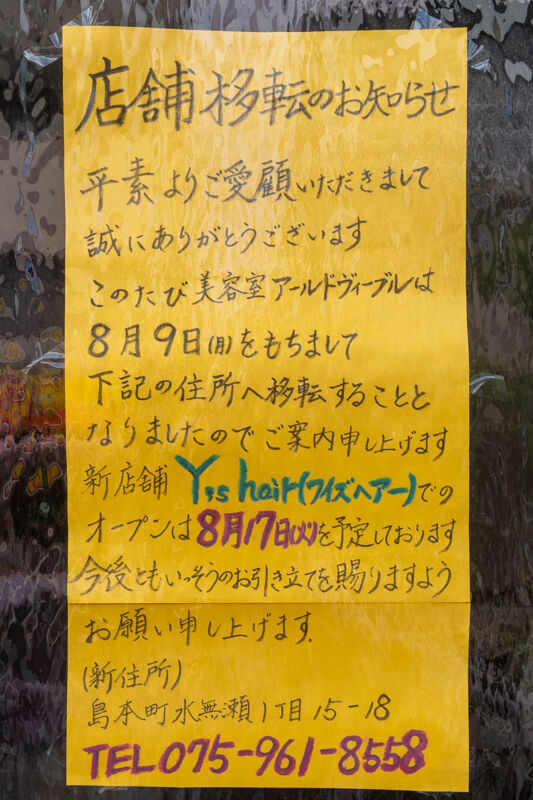 店舗移転のお知らせ
平素よりご愛顧いただきまして
誠にありがとうございます
このたび美容室アールドヴィーブルは
8月9日(月)をもちまして
下記の住所へ移転することと
なりましたのでご案内申し上げます
新店舗 Y,s hair(ワイズヘアー)での
オープンは8月17日(火)を予定しております
今後ともいっそうのお引き立てを賜りますよう
お願い申し上げます.
(新住所)
島本町水無瀬1丁目15-18
TEL075-961-8558